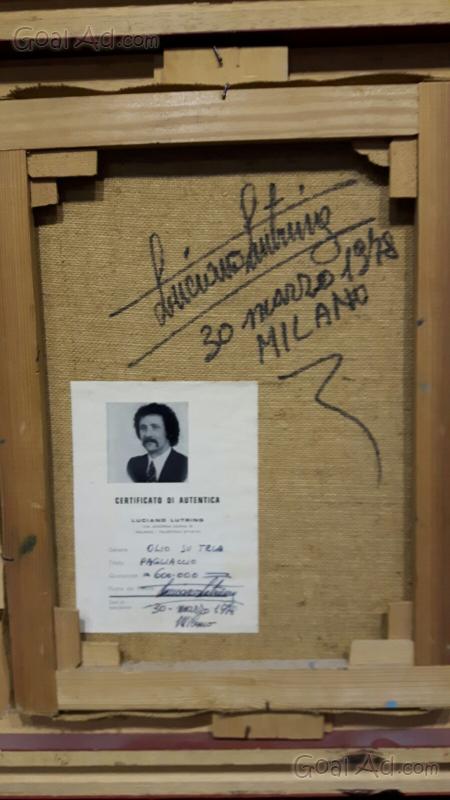 Goal Ad.com
Luciano Lutring
30 marzo 1978
MILANO
CERTIFICATO DI AUTENTICA
LUCIANO LUTRING
Genere OLIO SU TELA
Titolo PAGLIACCIO
Quotazione 600.000
Luciano Lutring
30 - marzo 1978
Milano
Goal Ad.com